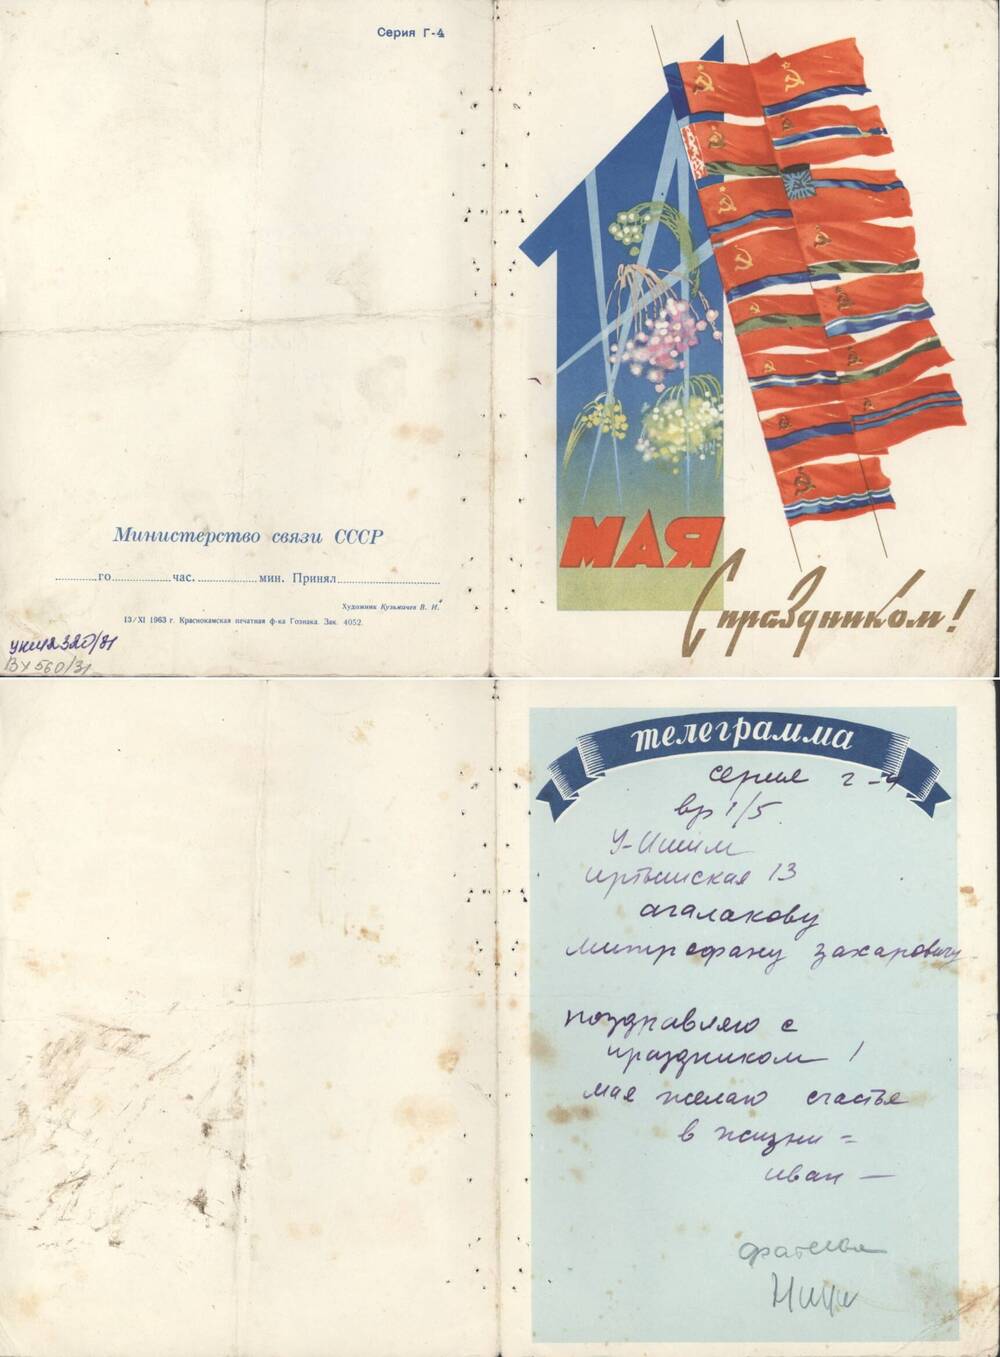 Серия Г-4
1
МАЯ
С праздником!
Министерство связи СССР
го час. мин. Принял
Художник Кузьмичев В. И.
13/XI 1963 г. Краснокамская печатная ф-ка Гознака. Зак. 4052.
320/81
ВХ 560/31
телеграмма
серия г-4
вр 1/5
У-Ишим
иртышская 13
агалакову
митрофану захаровичу
поздравляю с
праздником 1
мая желаю счастье
в жизни =
иван —